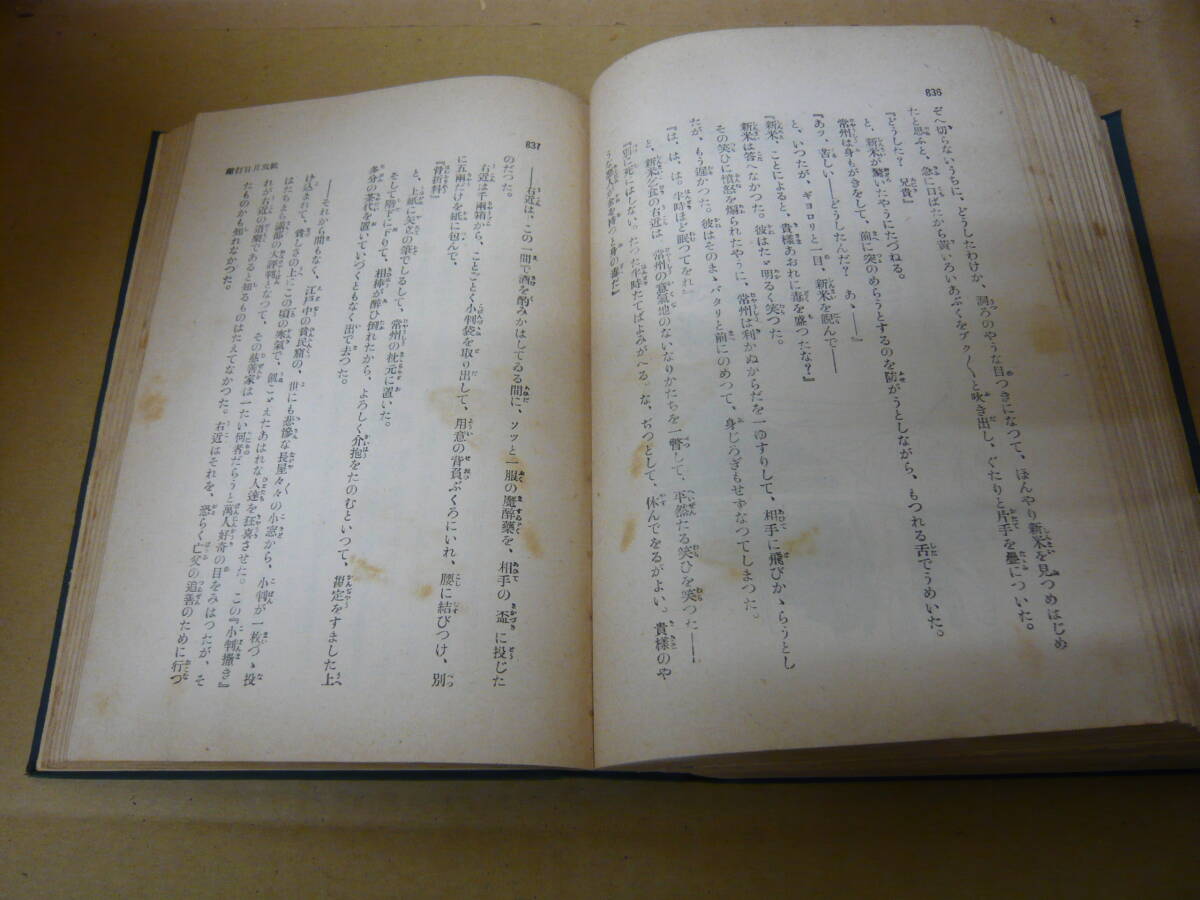 836
ぞへ切らないうちに、どうしたわけか、洞ろのやうな目つきになつて、ほんやり新米を見つめはじめ
たと思ふと、急に口ばたから黄いろいあぶくをブク〱と吹き出し、ぐたりと片手を疊についた。
『どうした？　兄貴』
と、新米が驚いたやうにたづねる。
常州は身もがきをして、前に突のめらうとするのを防がうとしながら、もつれる舌でうめいた。
『あッ、苦しい――どうしたんだ？　あゝ――』
と、いつたが、ギョロリと一目、新米を睨んで――
『新米、ことによると、貴様あおれに毒を盛つたな？』
新米は答へなかつた。彼はたゞ明るく笑つた。
その笑ひに憤怒を煽られたやうに、常州は利かぬからだを一ゆすりして、相手に飛びかゝらうとし
たが、もう遅かつた。彼はそのまゝバタリと前にのめつて、身じろぎもせずなつてしまつた。
『は、は、は。半時ほど眠つてをれ』
と、新米乞食の右近は、常州の意氣地のないなりかたちを一瞥して、平然たる笑ひを笑つた――
『別に死にはしない。たつた半時たてばよみがへる。な、ぢつとして、休んでをるがよい。貴様のや
うな惡人が金を持つと身の毒だ』
837
――右近は、この一間で酒を酌みかはしてゐる間に、ソツと一服の魔醉藥を、相手の盃に投じた
のだつた。
右近は千兩箱から、ことごとく小判袋を取り出して、用意の背負ぶくろにいれ、腰に結びつけ、別
に五兩だけを紙に包んで、
『骨折料』
と、上紙に矢立の筆でしるして、常州の枕元に置いた。
そして階下に下りて、相棒が醉ひ倒れたから、よろしく介抱をたのむといつて、勘定をすました上
多分の茶代を置いていづくともなく出で去つた。
――それから間もなく、江戸中の貧民窟の、世にも悲慘な長屋々々の小窓から、小判が一枚づゝ投
け込まれて、貧しさの上にこの頃の寒氣で、飢こゞえたあはれな人達を狂喜させた。この『小判撒き』
はたちまち滿都の大評判となつて、その慈善家は一たい何者だらうと萬人好奇の目をみはつたが、そ
れが右近の道樂であると知るものはたえてなかつた。右近はそれを、恐らく亡父の追善のために行つ
たものかも知れなかつた。